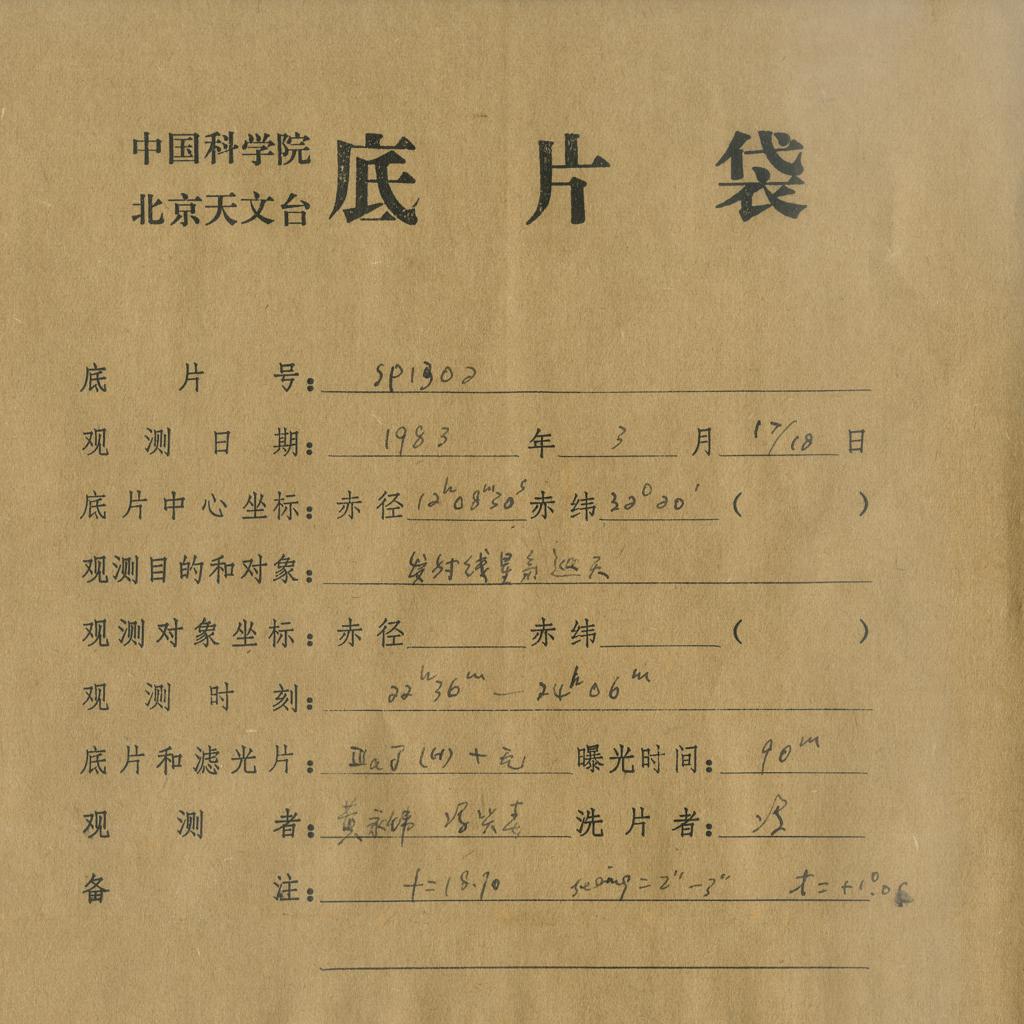 中国科学院
北京天文台
底片袋
底片号: SP1302
观测日期: 1983年3月17/18日
底片中心坐标: 赤径12ʰ08ᵐ30ˢ赤纬32⁰20′( )
观测目的和对象: 发射线星系巡天
观测对象坐标: 赤径 赤纬 ( )
观测时刻: 22ʰ36ᵐ—24ʰ06ᵐ
底片和滤光片: ⅢaJ(H)+无 曝光时间: 90ᵐ
观测者: 黄永伟 洗片者:
备注: f=18.90 seeing=2″-3″ t=+1⁰.0